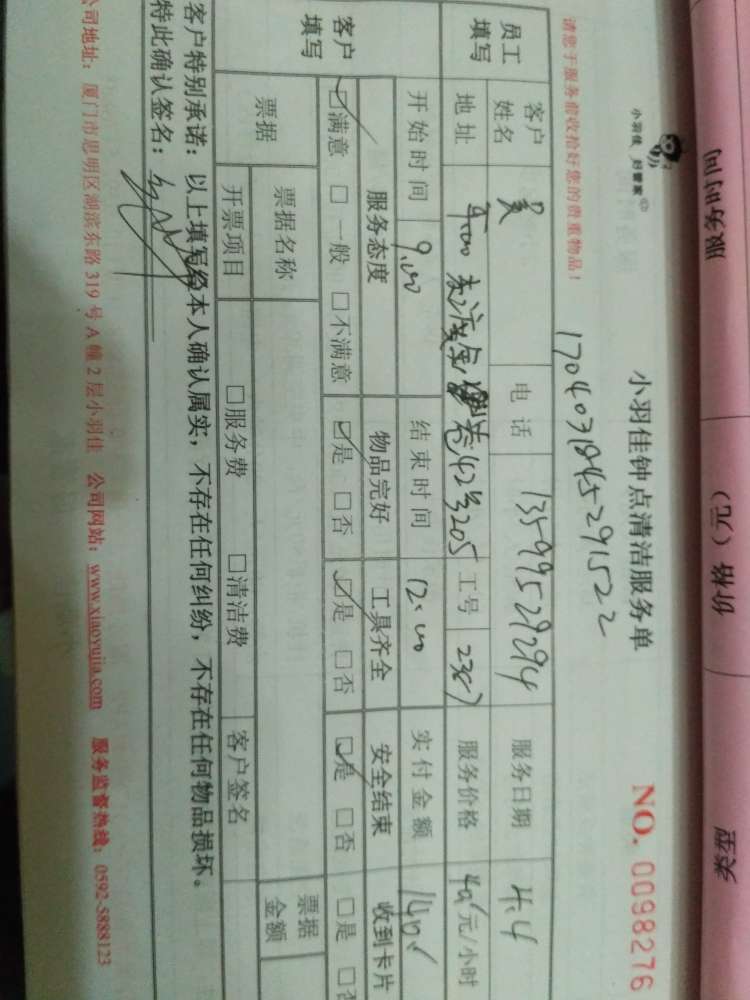 服务时间 价格（元） 类型
小羽佳 好管家
小羽佳钟点清洁服务单 NO. 0098276
1704031845291522
请您于服务前收拾好您的贵重物品！
员工填写 客户姓名 电话 13599529294 服务日期 4.4
地址 423205 工号 服务价格 元/小时
开始时间 9.00 结束时间 12.00 实付金额
客户填写 服务态度 物品完好 工具齐全 安全结束 收到卡片
☑满意 □一般 □不满意 ☑是 □否 ☑是 □否 ☑是 □否 □是 □否
票据 票据名称 票据金额
开票项目 □服务费 □清洁费 客户签名
客户特别承诺：以上填写经本人确认属实，不存在任何纠纷，不存在任何物品损坏。
特此确认签名：
公司地址：厦门市思明区湖滨东路 319 号 A 幢 2 层小羽佳 公司网站：www.xiaoyujia.com 服务监督热线：0592-5888123